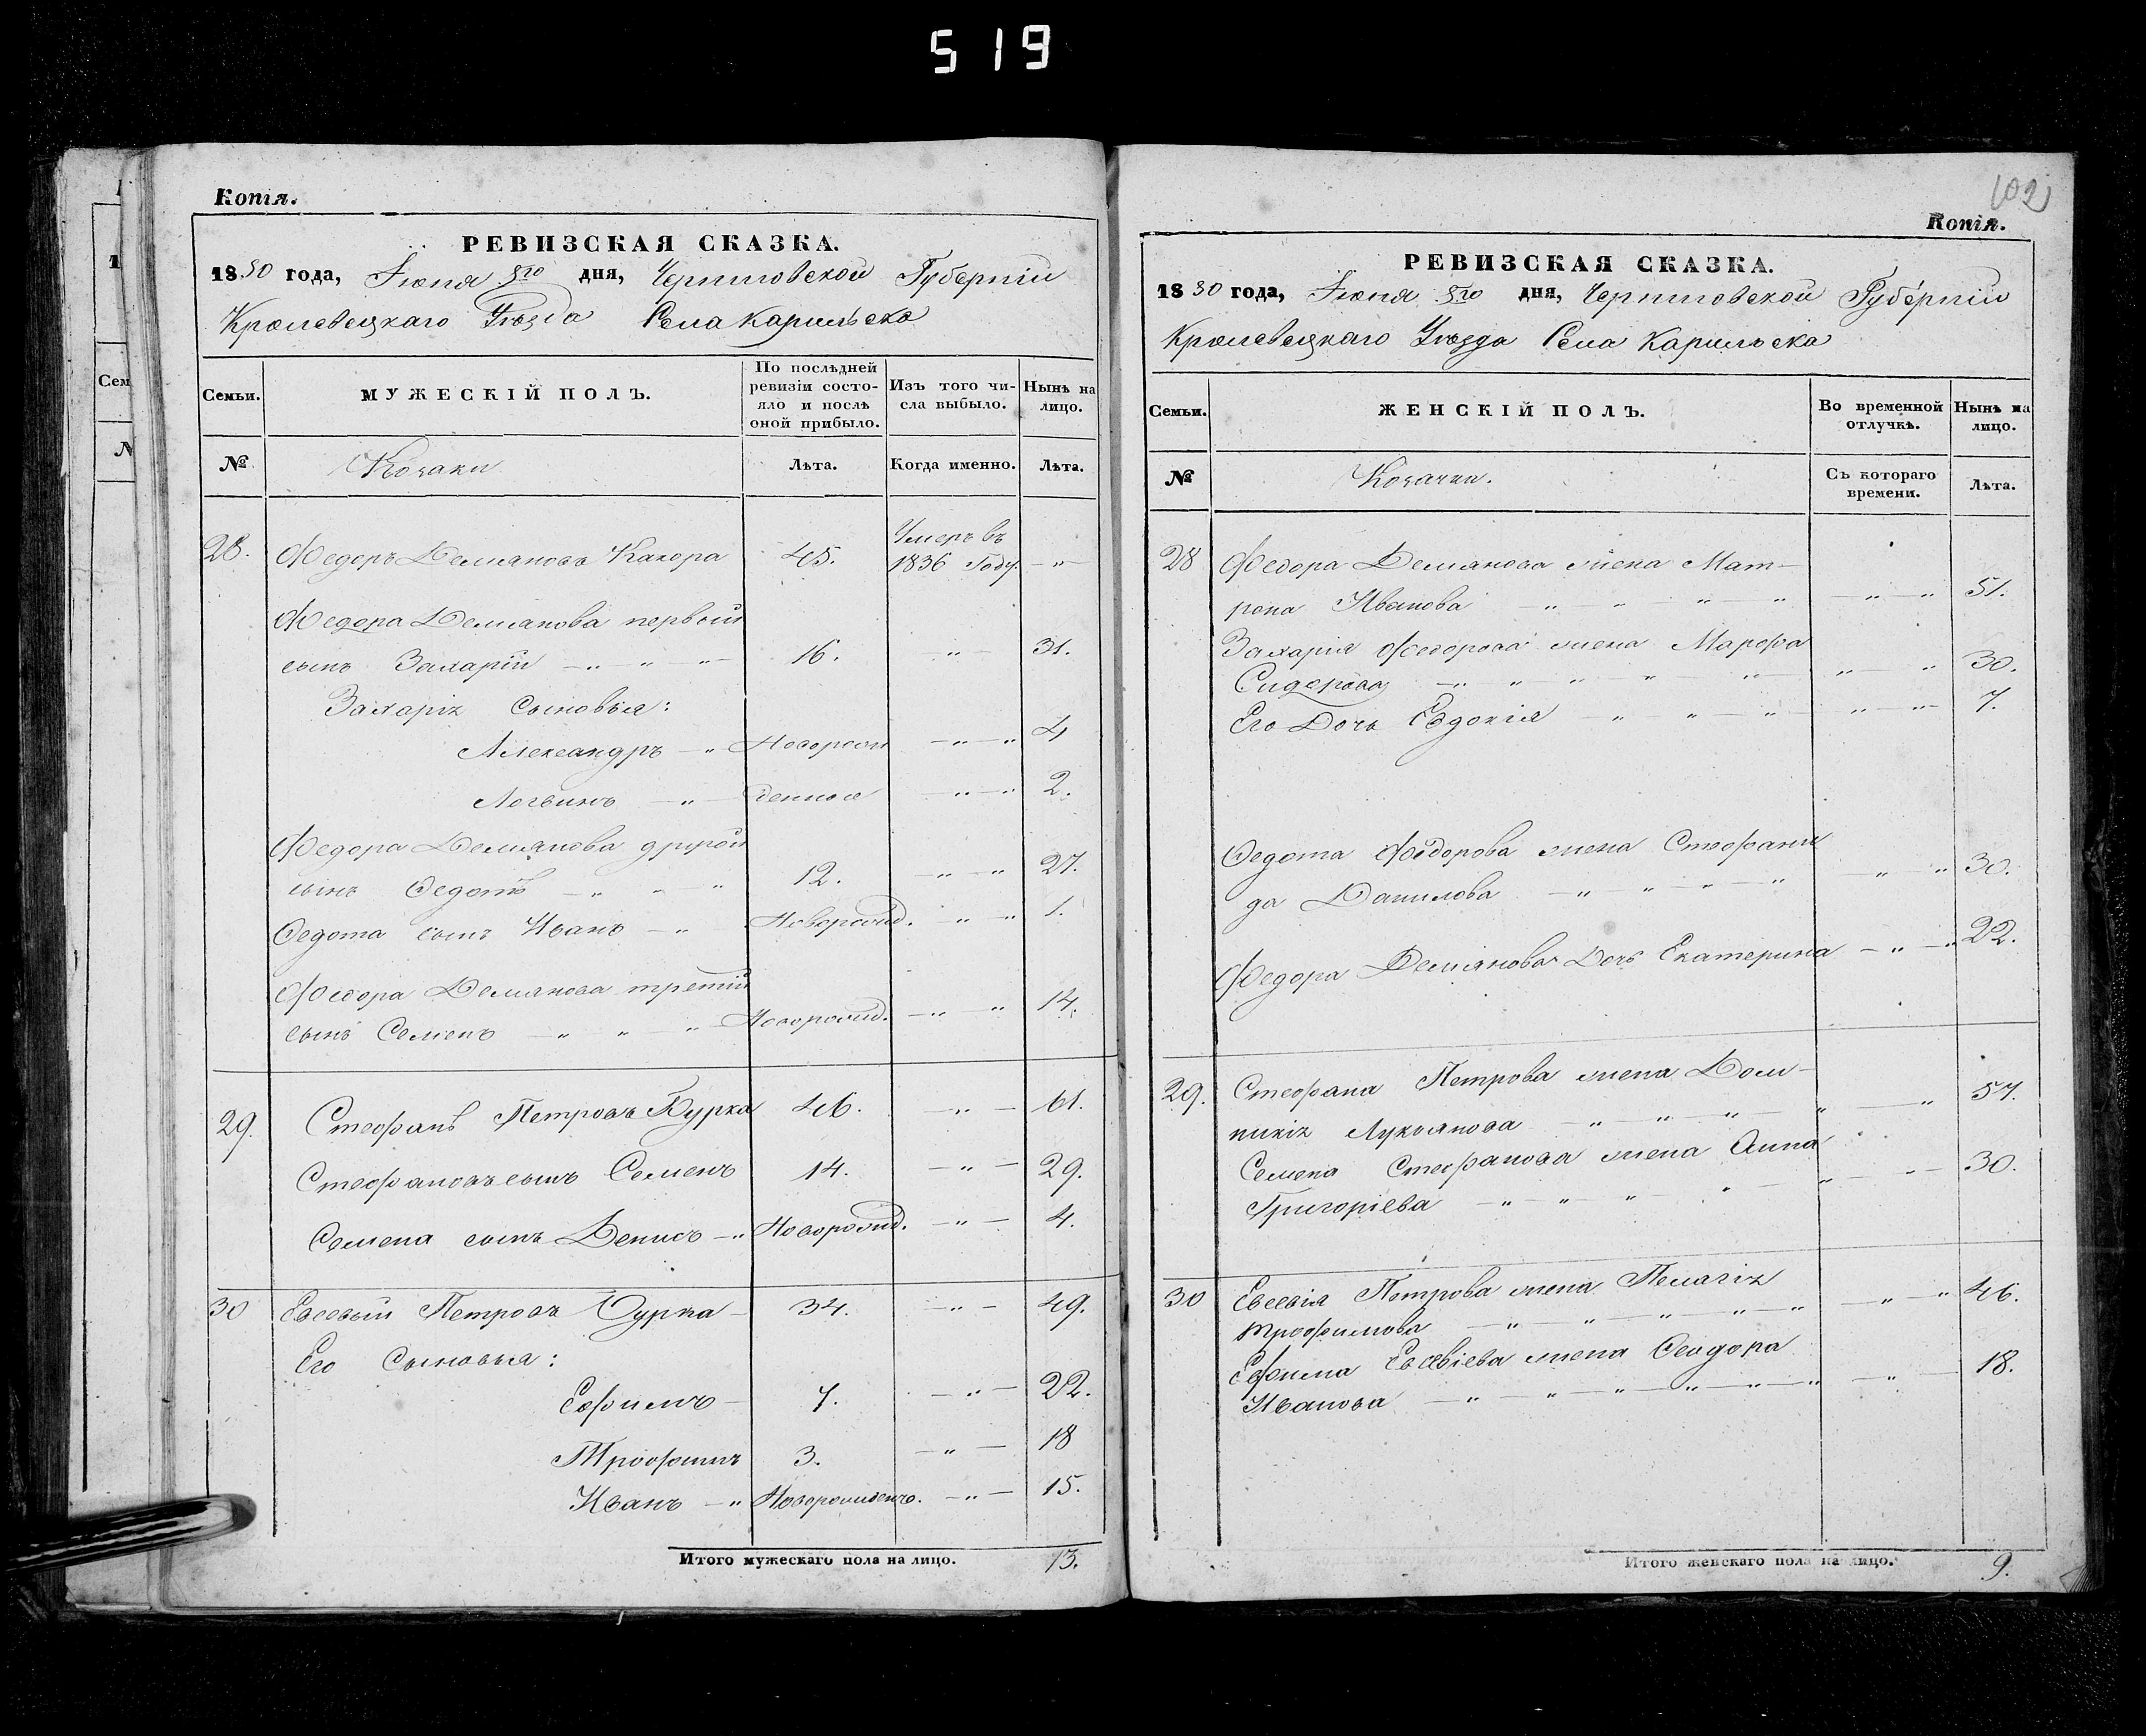 519
Копія.
РЕВИЗСКАЯ СКАЗКА.
1850 года, Іюня 8го дня, Черниговской Губерніи
Кролевецкаго Уѣзда Села Карильска
Семьи.
МУЖЕСКІЙ ПОЛЪ.
По послѣдней ревизіи состо-
яло и послѣ оной прибыло.
Изъ того чи-
сла выбыло.
Нынѣ на
лицо.
№
Козаки
Лѣта.
Когда именно.
Лѣта.
28. Федоръ Демяновъ 45. Умеръ въ
1836 Году — " —
Федора Демянова первый
сынъ Захарій — " — " — " — 16. — " — 31.
Захарія Сыновья:
Александръ — " Новорож — " — " 4
Логвинъ — " — денные — " — " 2.
Федора Демянова другой
сынъ Федотъ — " — " — " 12. — " — " 27.
Федота сынъ Иванъ — " Новорожд. — " — " 1.
Федора Демянова третій
сынъ Семенъ — " — " — " Новорожд. — " — " 14.
29. Стефанъ Петровъ Бурка 46. — " — 61.
Стефановъ сынъ Семенъ 14. — " — 29.
Семена сынъ Денисъ — " Новорожд. — " — 4.
30 Евсевый Петровъ 34. — " — 49.
Его Сыновья:
Ефимъ — 7. — " — 22.
Трофимъ 3. — " — 18
Иванъ — " Новорожденъ. — " — 15.
Итого мужескаго пола на лицо. 13.
102
Копія.
РЕВИЗСКАЯ СКАЗКА.
1850 года, Іюня 8го дня, Черниговской Губерніи
Кролевецкаго Уѣзда Села Карильска
Семьи.
ЖЕНСКІЙ ПОЛЪ.
Во временной
отлучкѣ.
Нынѣ на
лицо.
№
Козачки.
Съ котораго
времени.
Лѣта.
28 Федора Демянова жена Мат-
рона Иванова — " — " — " — " — " — " 51.
Захарія Федорова жена Марфа
Сидорова — " — " — " — " — " — " — " 30.
Его Дочь Евдокія — " — " — " — " — " — 7.
Федота Федорова жена Стефани
да Данилова — " — " — " — " — " — " 30.
Федора Демянова Дочь Екатерина — " — " 22.
29. Стефана Петрова жена Дом-
никія Лукьянова — " — " — " — " — " 57.
Семена Стефанова жена Анна
Григоріева — " — " — " — " — " — 30.
30 Евсевія Петрова жена Пелагія
Трофимова — " — " — " — " — " — " — " 46.
Ефима Евсевіева жена Феодора
Иванова — " — " — " — " — " — " — " — 18.
Итого женскаго пола на лицо. 9.